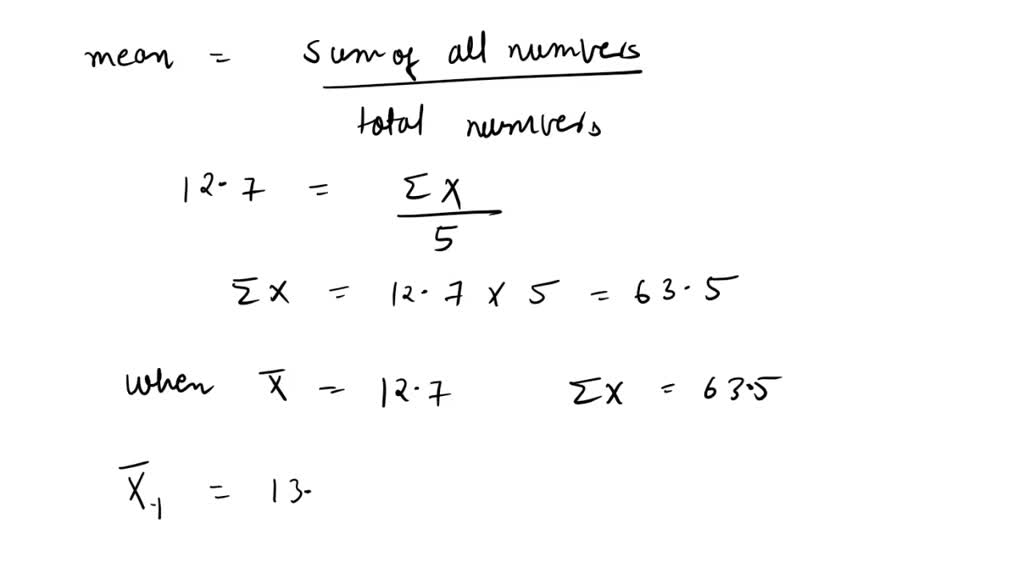 mean = sum of all numbers
total numbers
12.7 = Σx
5
Σx = 12.7 x 5 = 63.5
when x̄ = 12.7 Σx = 63.5
x̄₋₁ = 13.